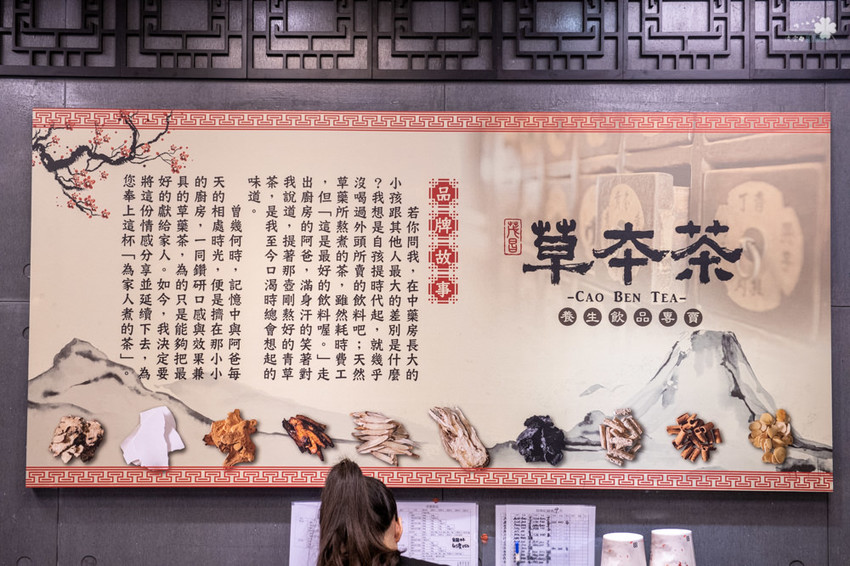 茂昌
草本茶
-CAO BEN TEA-
養生飲品專賣
品牌故事
若你問我，在中藥房長大的
小孩跟其他人最大的差別是什麼
？我想是自孩提時代起，就幾乎
沒喝過外頭所賣的飲料吧；天然
草藥所熬煮的茶，雖然耗時費工
，但「這是最好的飲料喔。」走
出廚房的阿爸，滿身汗的笑著對
我說道，提著那壺剛熬好的青草
茶，是我至今口渴時總會想起的
味道。
曾幾何時，記憶中與阿爸每
天的相處時光，便是擠在那小小
的廚房，一同鑽研口感與效果兼
具的草藥茶，為的只是能夠把最
好的獻給家人。如今，我決定要
將這份情感分享並延續下去，為
您奉上這杯「為家人煮的茶」。